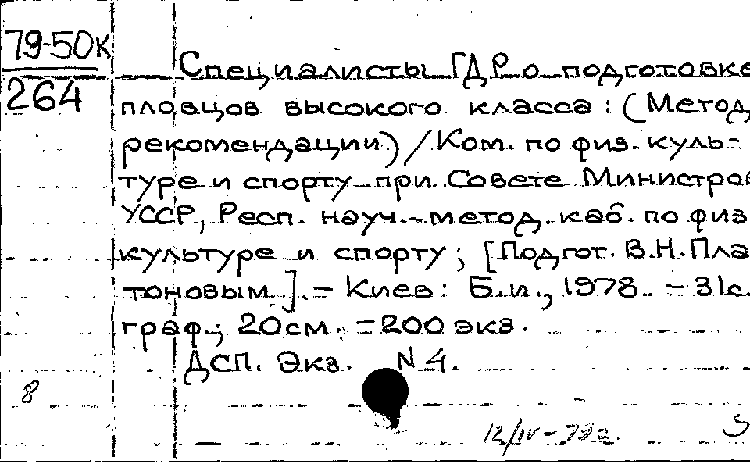 79-50к
264
Специалисты ГДР о подготовке
пловцов высокого класса: (Метод.
рекомендации) / Ком. по физ. куль-
туре и спорту при Совете Министров
УССР, Респ. науч.-метод. каб. по физ.
культуре и спорту; [Подгот. В.Н. Пла-
тоновым]. - Киев: Б.и., 1978. - 31с.
граф.; 20см. - 200 экз.
ДСП. Экз. N 4.
8